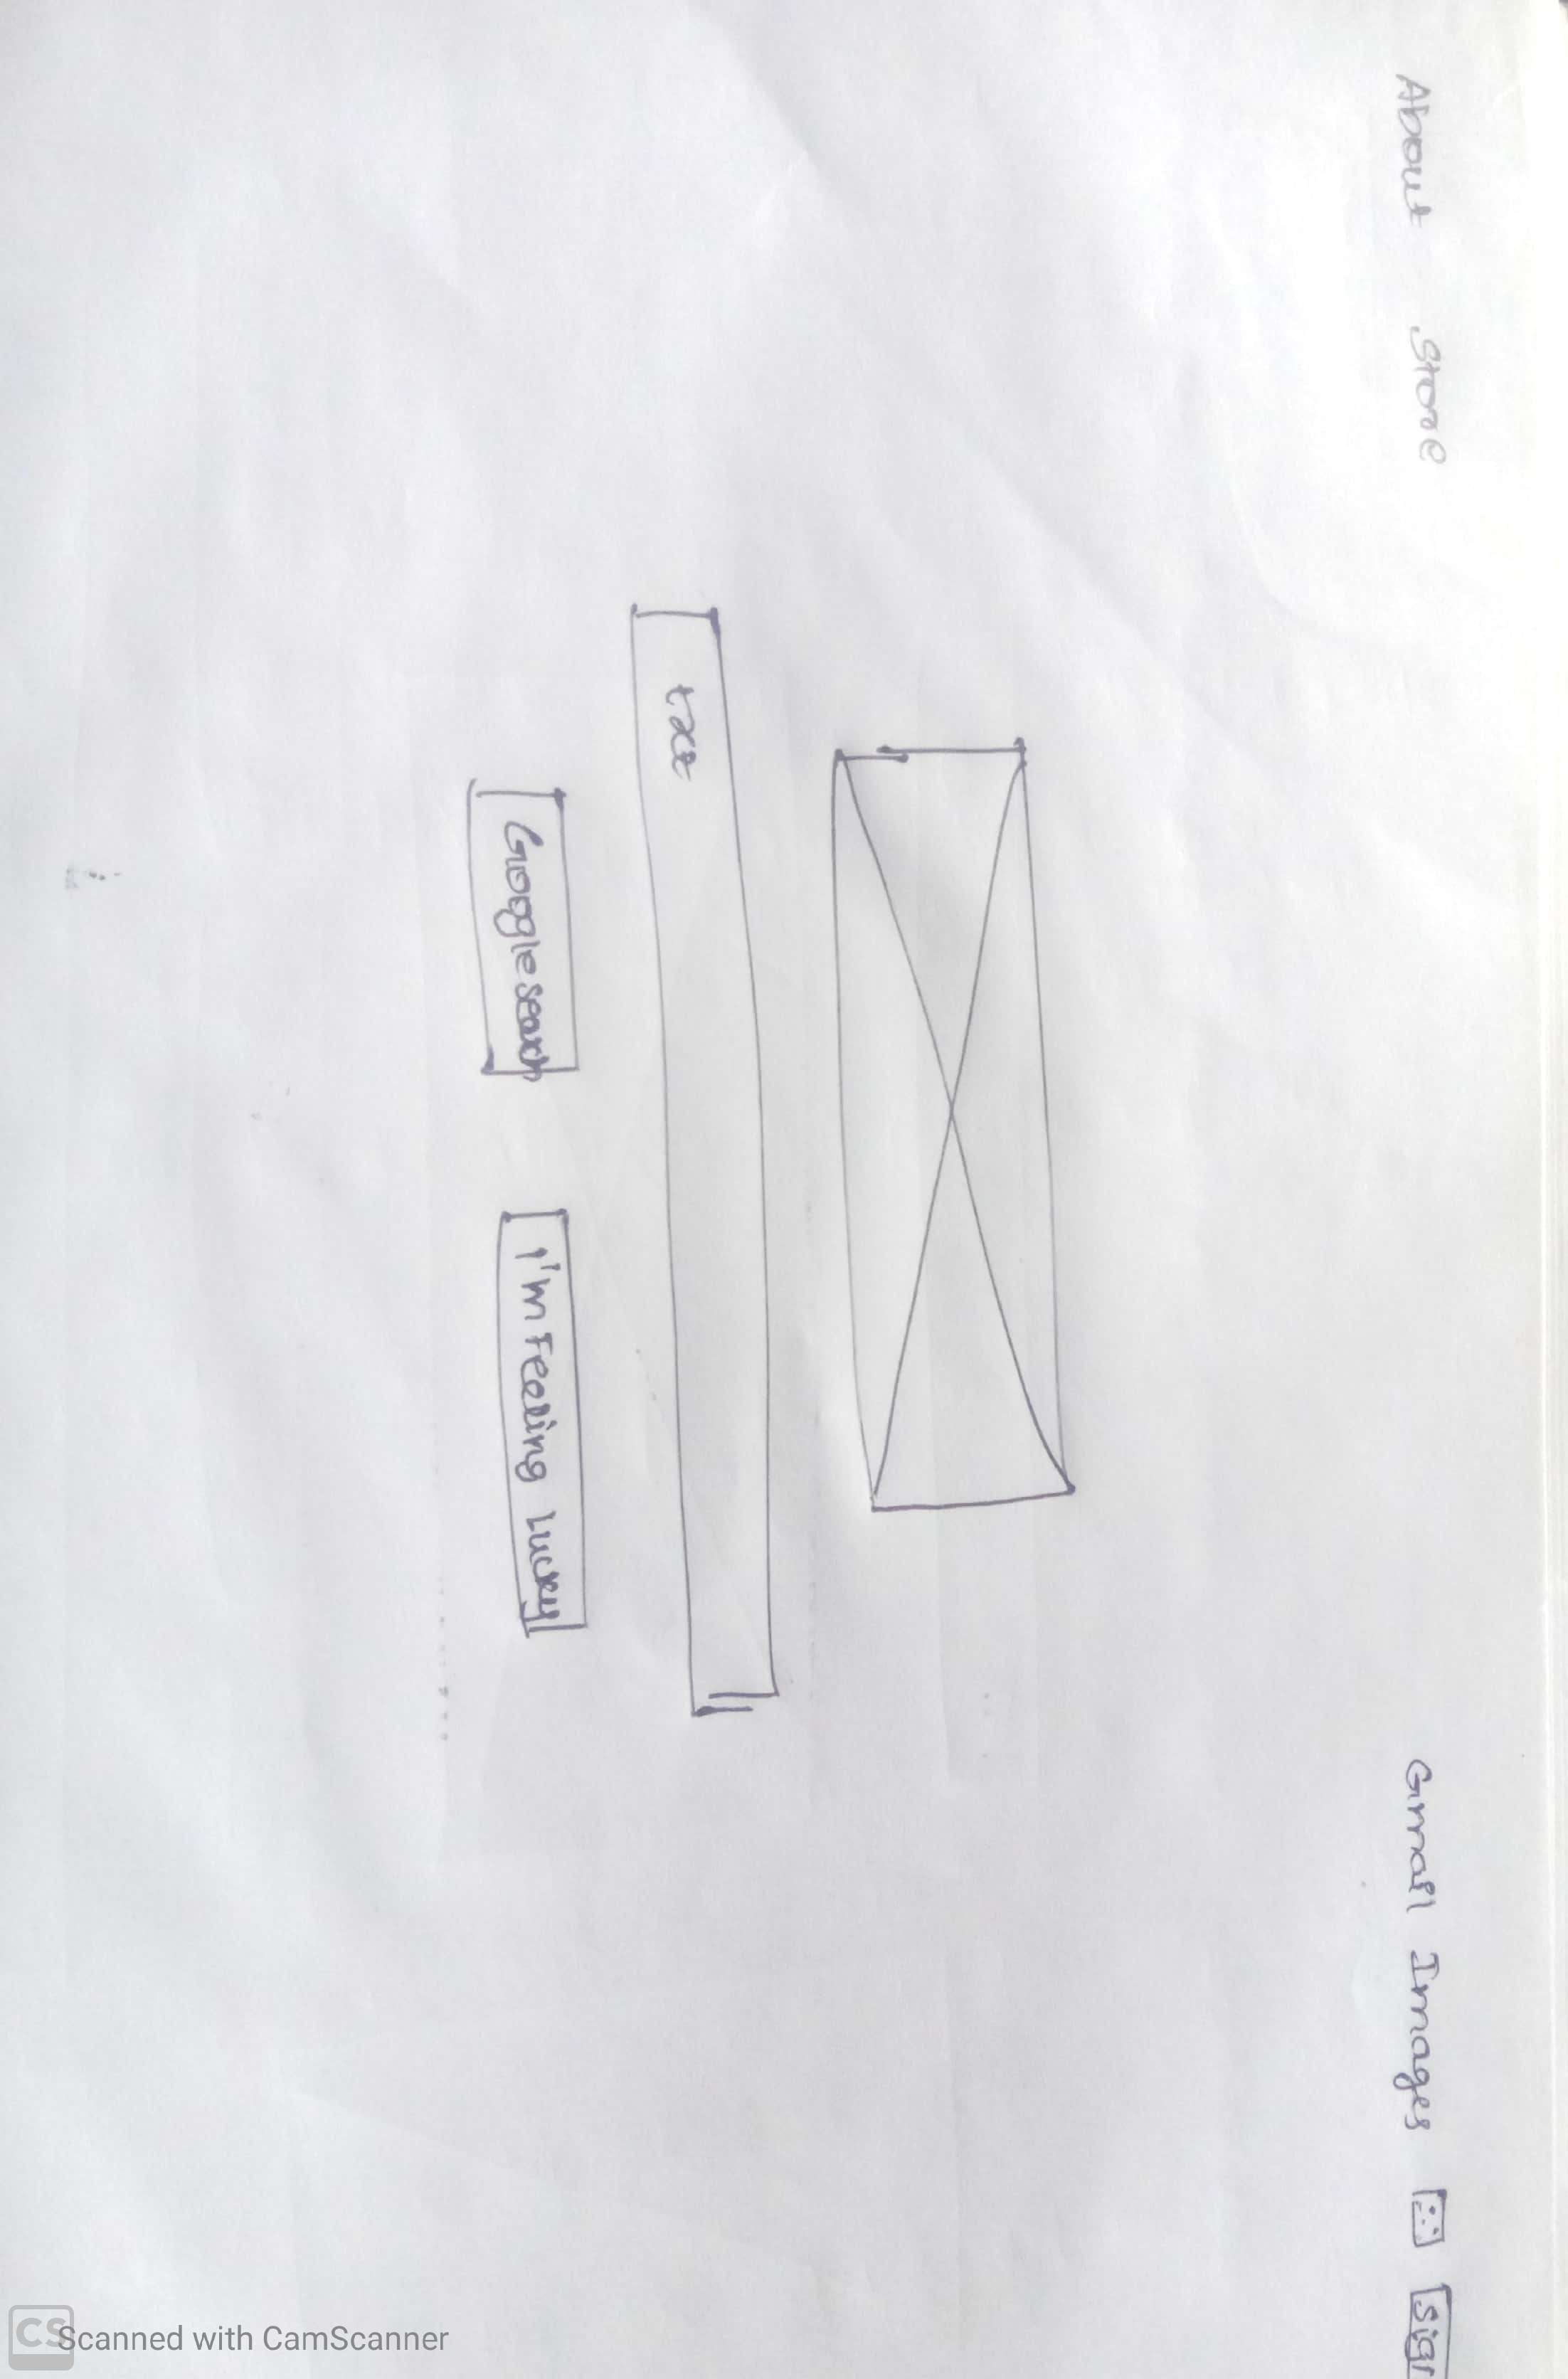 About Store Gmail Images
txt
Google search I'm Feeling Lucky
Scanned with CamScanner
CS